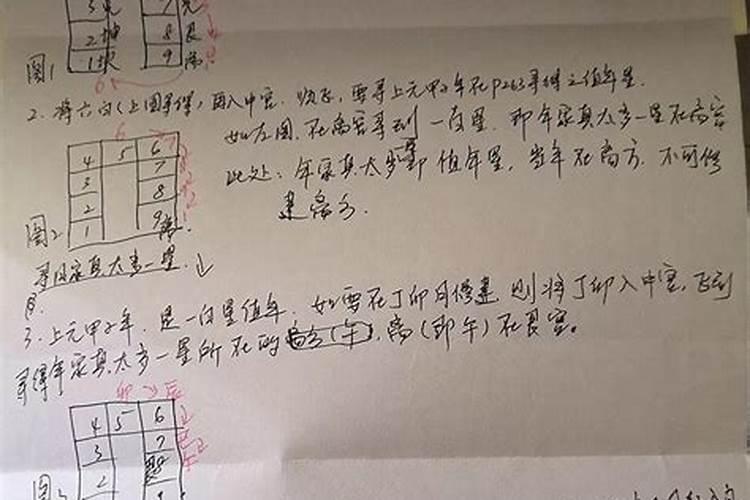 3 兑 7 兑
2 坤 8 艮
图1 1 坎 9 离
6
2. 将六白(上图寻得)再入中宫.顺飞,要寻上元甲子年在P263寻得之值年星.
如左图.在离宫寻到一白星.即年家真太岁一星在离宫
6
4 5 6
3 7
2 8
图2 1 9 离.
此处:年家真太岁即值年星,当年在离方.不可修
建离方.
寻月家真太岁一星.↓
月.
3.上元甲子年.是一白星值年.如要在丁卯月修建则将丁卯入中宫.飞到
寻得年家真太岁一星所在的 离(即午)在艮宫。
卯 → 辰
4 5 6
3 7
2
图3